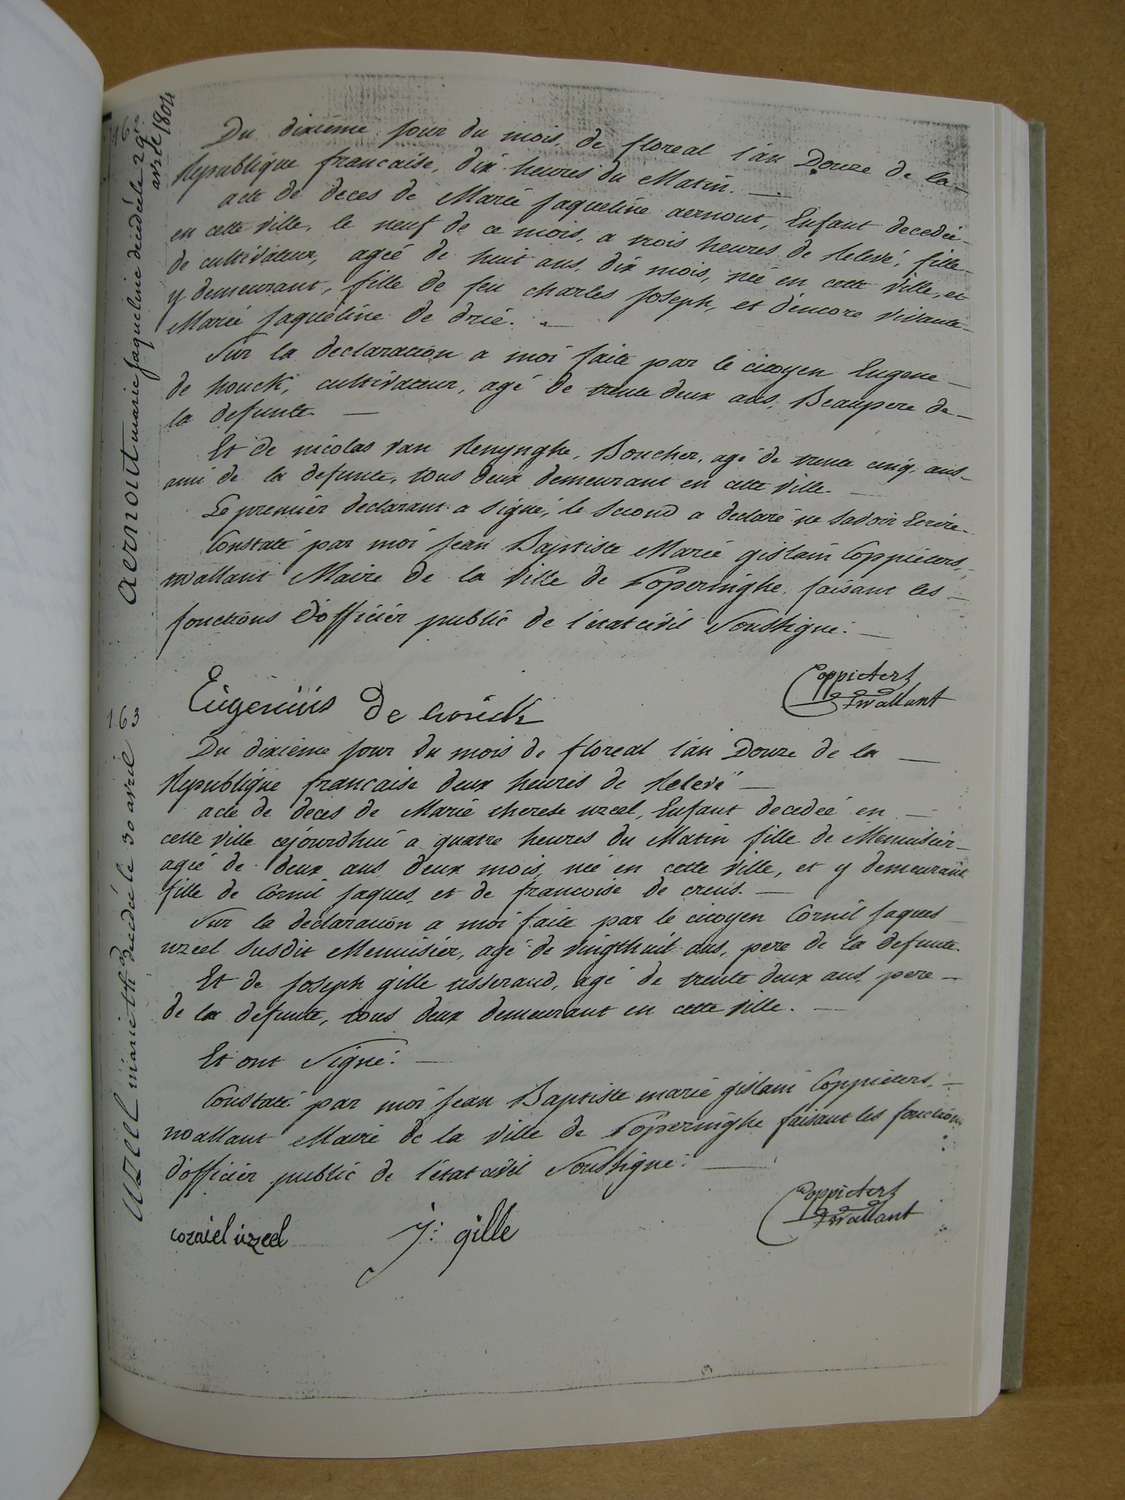 aernout marie jaqueline decedée le 29 avril 1804
Du dixième jour du mois de floreal l'an Douze de la
Republique francaise, dix heures du Matin.
acte de deces de Marie jaqueline aernout, Enfant decedée
en cette ville, le neuf de ce mois, a trois heures de Relevé, fille
de cultivateur, agée de huit ans, dix mois, née en cette ville, et
y demeurant, fille de feu charles joseph, et d'encore vivante
Marie jaqueline de drie.
Sur la declaration a moi faite par le citoyen Eugene
de houck, cultivateur, agé de trente deux ans, Beaupere de
la defunte.
Et de nicolas van Renynghe, Boucher, agé de trente cinq ans
ami de la defunte, tous deux demeurant en cette ville.
Le premier declarant a signé, le second a declaré ne savoir Ecrire
Constaté par moi jean Baptiste Marie gislain Coppieters,
wallant Maire de la Ville de Poperinghe, faisant les
fonctions d'officier public de l'etat civil Soussigné.
Eugenius De houck
Coppieters
wallant
163
uzeel marie th decedée le 30 avril
Du dixième jour du mois de floreal l'an Douze de la
Republique francaise deux heures de Relevé
acte de deces de Marie therese uzeel, Enfant decedée en
cette ville cejourdhui a quatre heures du Matin fille de Menuisier
agée de deux ans deux mois, née en cette ville, et y demeurant
fille de Cornil jaques, et de francoise de creus.
Sur la declaration a moi faite par le citoyen Cornil jaques
uzeel susdit Menuisier, agé de vingthuit ans, pere de la defunte.
Et de joseph gille tisserand, agé de trente deux ans, pere
de la defunte, tous deux demeurant en cette ville.
Et ont Signé.
Constaté par moi jean Baptiste marie gislain Coppieters,
wallant Maire de la ville de Poperinghe faisant les fonctions
d'officier public de l'etat civil Soussigné.
Coppieters
wallant
corniel uzeel j: gille